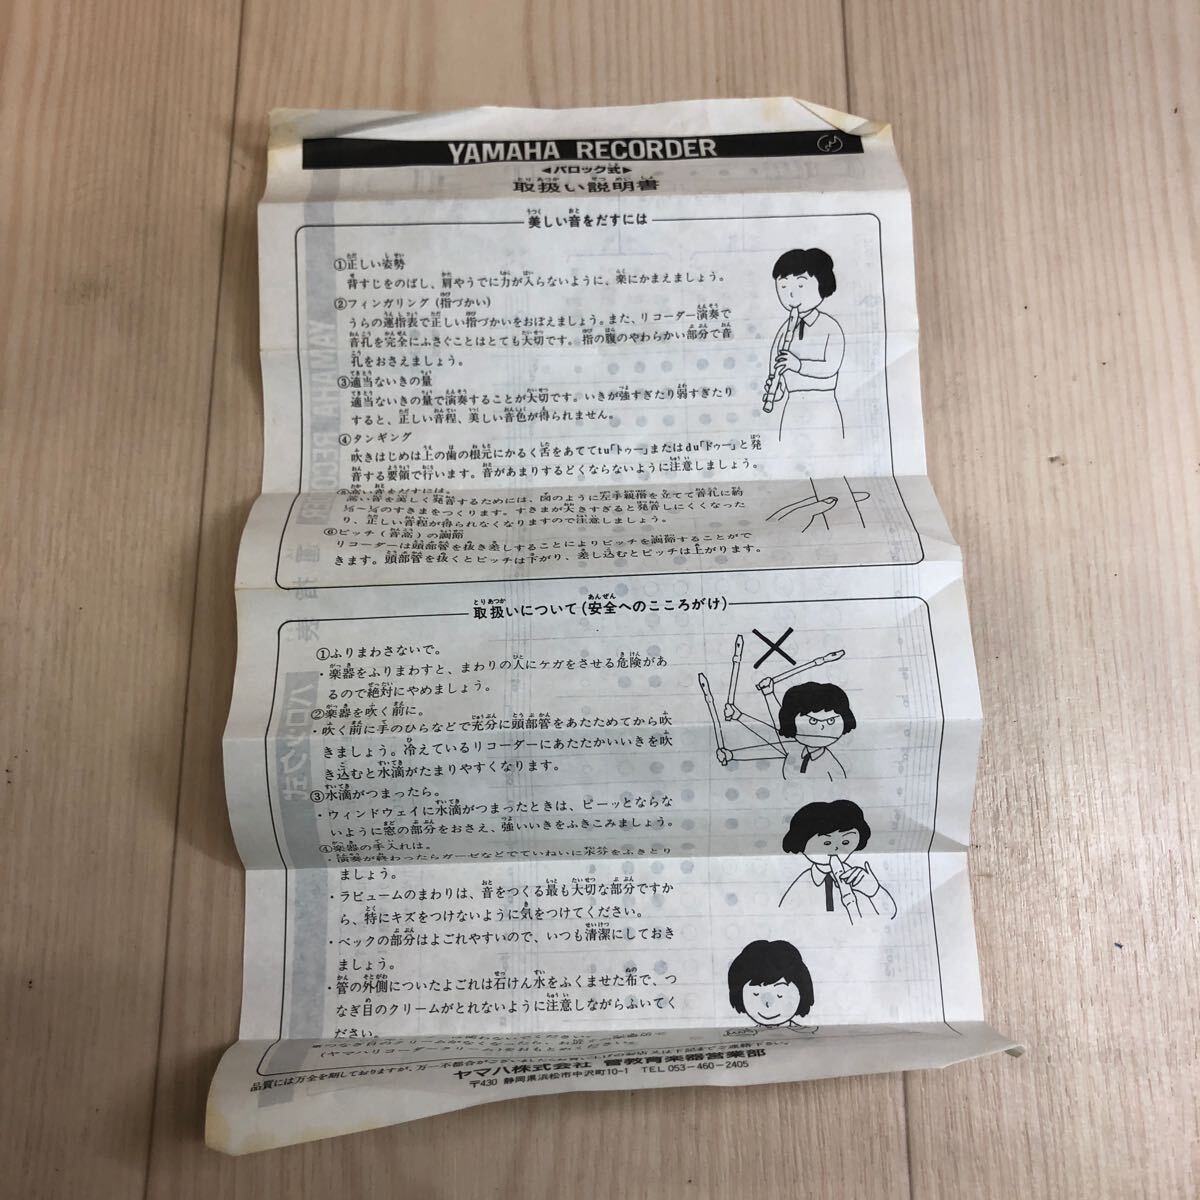 YAMAHA RECORDER
◀バロック式▶
取扱い説明書
美しい音をだすには
①正しい姿勢
背すじをのばし、肩やうでに力が入らないように、楽にかまえましょう。
②フィンガリング(指づかい)
うらの運指表で正しい指づかいをおぼえましょう。また、リコーダー演奏で
音孔を完全にふさぐことはとても大切です。指の腹のやわらかい部分で音
孔をおさえましょう。
③適当ないきの量
適当ないきの量で演奏することが大切です。いきが強すぎたり弱すぎたり
すると、正しい音程、美しい音色が得られません。
④タンギング
吹きはじめは上の歯の根元にかるく舌をあててtu「トゥー」またはdu「ドゥー」と発
音する要領で行います。音があまりするどくならないように注意しましょう。
⑤高い音をだすには。
高い音を美しく発音するためには、図のように左手親指を立てて音孔に約
のすきまをつくります。すきまが大きすぎると発音しにくくなった
り、正しい音程が得られなくなりますので注意しましょう。
⑥ピッチ(音高)の調節
リコーダーは頭部管を抜き差しすることによりピッチを調節することがで
きます。頭部管を抜くとピッチは下がり、差し込むとピッチは上がります。
取扱いについて(安全へのこころがけ)
①ふりまわさないで。
・楽器をふりまわすと、まわりの人にケガをさせる危険があ
るので絶対にやめましょう。
②楽器を吹く前に。
・吹く前に手のひらなどで充分に頭部管をあたためてから吹
きましょう。冷えているリコーダーにあたたかいいきを吹
き込むと水滴がたまりやすくなります。
③水滴がつまったら。
・ウィンドウェイに水滴がつまったときは、ピーッとならな
いように窓の部分をおさえ、強いいきをふきこみましょう。
④楽器の手入れは。
・演奏が終わったらガーゼなどでていねいに水分をふきとり
ましょう。
・ラビュームのまわりは、音をつくる最も大切な部分ですか
ら、特にキズをつけないように気をつけてください。
・ベックの部分はよごれやすいので、いつも清潔にしておき
ましょう。
・管の外側についたよごれは石けん水をふくませた布で、つ
なぎ目のクリームがとれないように注意しながらふいてく
ださい。
品質には万全を期しておりますが、万一不都合が
ヤマハ株式会社 管教育楽器営業部
〒430 静岡県浜松市中沢町10-1 TEL 053-460-2405